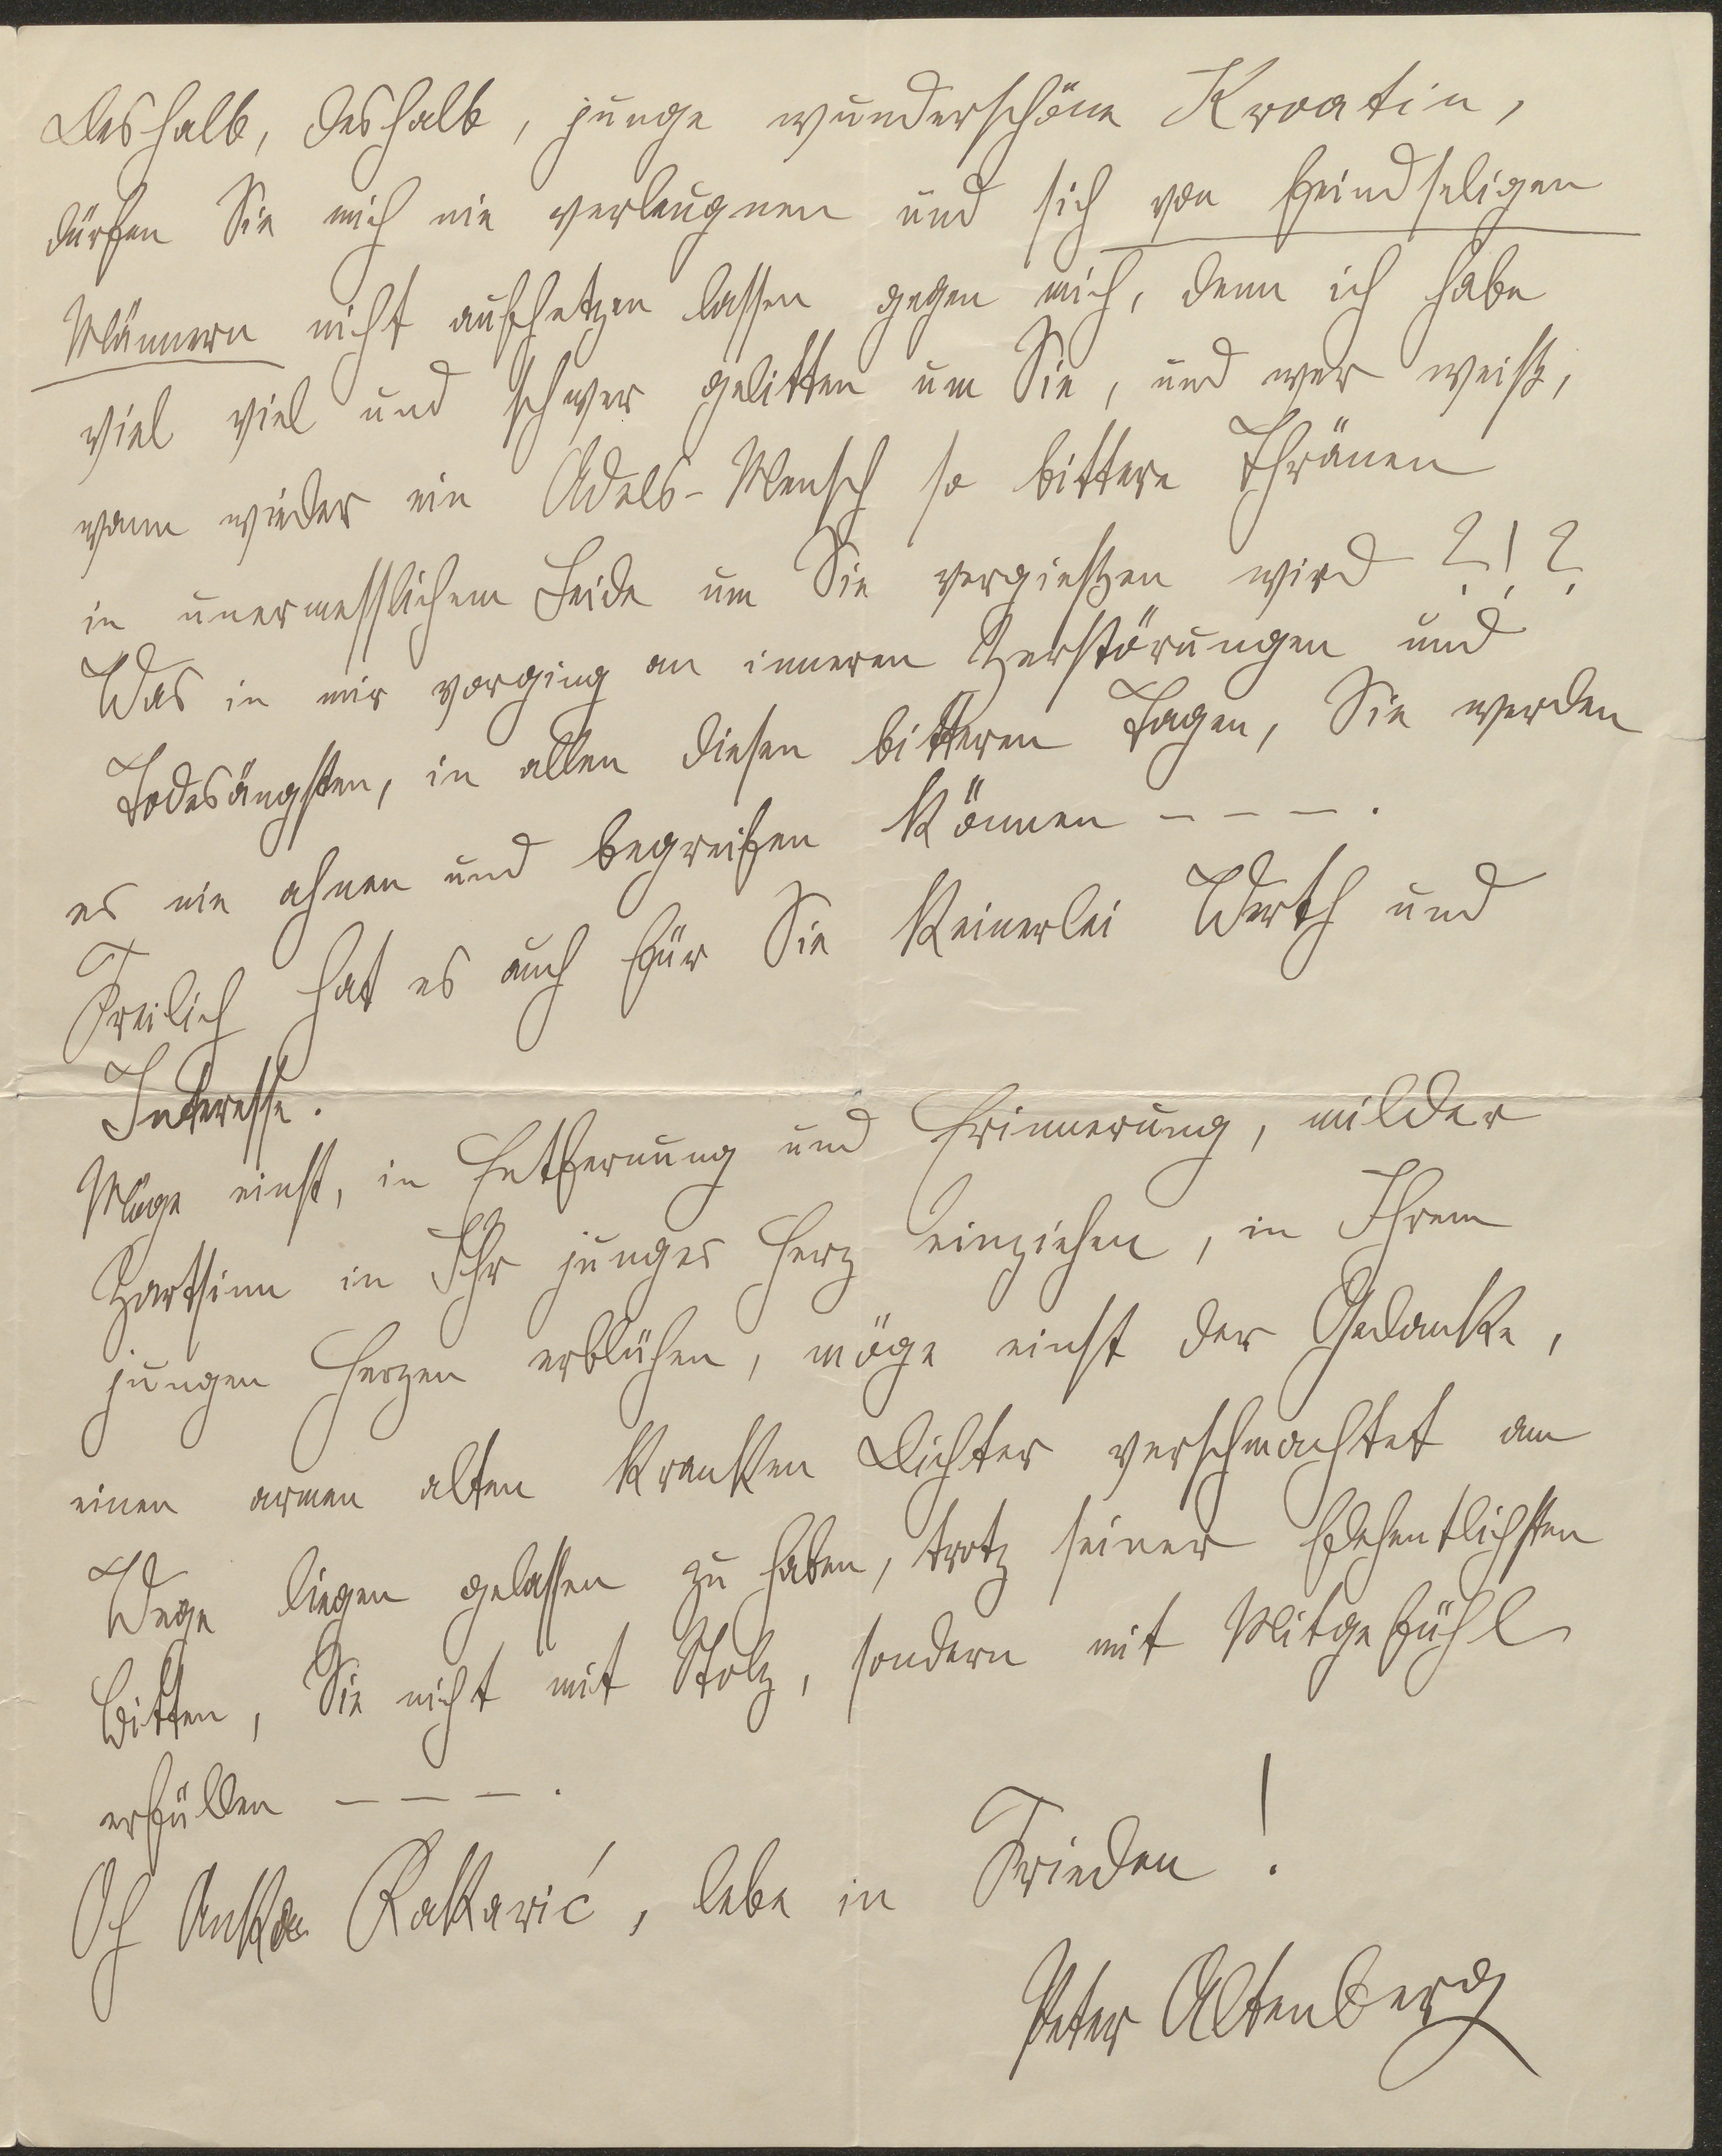 Deshalb, deshalb, junge wunderschöne Kroatin,
dürfen Sie mich nie verleugnen und sich von feindseligen
Männern nicht aufhetzen lassen gegen mich, denn ich habe
viel viel und schwer gelitten um Sie, und wer weiß,
wann wieder ein Adels-Mensch so bittere Thränen
in unermesslichem Leide um Sie vergießen wird ?!?
Was in mir vorging an inneren Zerstörungen und
Todesängsten, in allen diesen bitteren Tagen, Sie werden
es nie ahnen und begreifen können – – – .
Freilich hat es auch für Sie keinerlei Werth und
Interesse.
Möge einst, in Entfernung und Erinnerung, milder
Zartsinn in Ihr junges Herz einziehen, in Ihrem
jungen Herzen erblühen, möge einst der Gedanke,
einen armen alten kranken Dichter verschmachtet am
Wege liegen gelassen zu haben, trotz seiner flehentlichsten
Bitten, Sie nicht mit Stolz, sondern mit Mitgefühl
erfüllen – – – .
Oh Anka Rakarić, lebe in Frieden!
Peter Altenberg